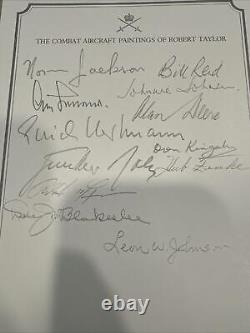 THE COMBAT AIRCRAFT PAINTINGS OF ROBERT TAYLOR
Norman Jackson Bill Reid
Johnnie Johnson
Alan Deere
Erich Hartmann
Don Kingaby
Günther Rall Hub Zemke
Don Blakeslee
Leon W. Johnson